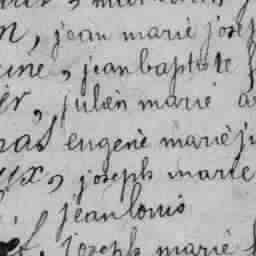 n, jean marié josep
ine, jean baptiste
er, julien marié
pas eugenè marié ju
ux, joseph marie
jean louis
joseph marié